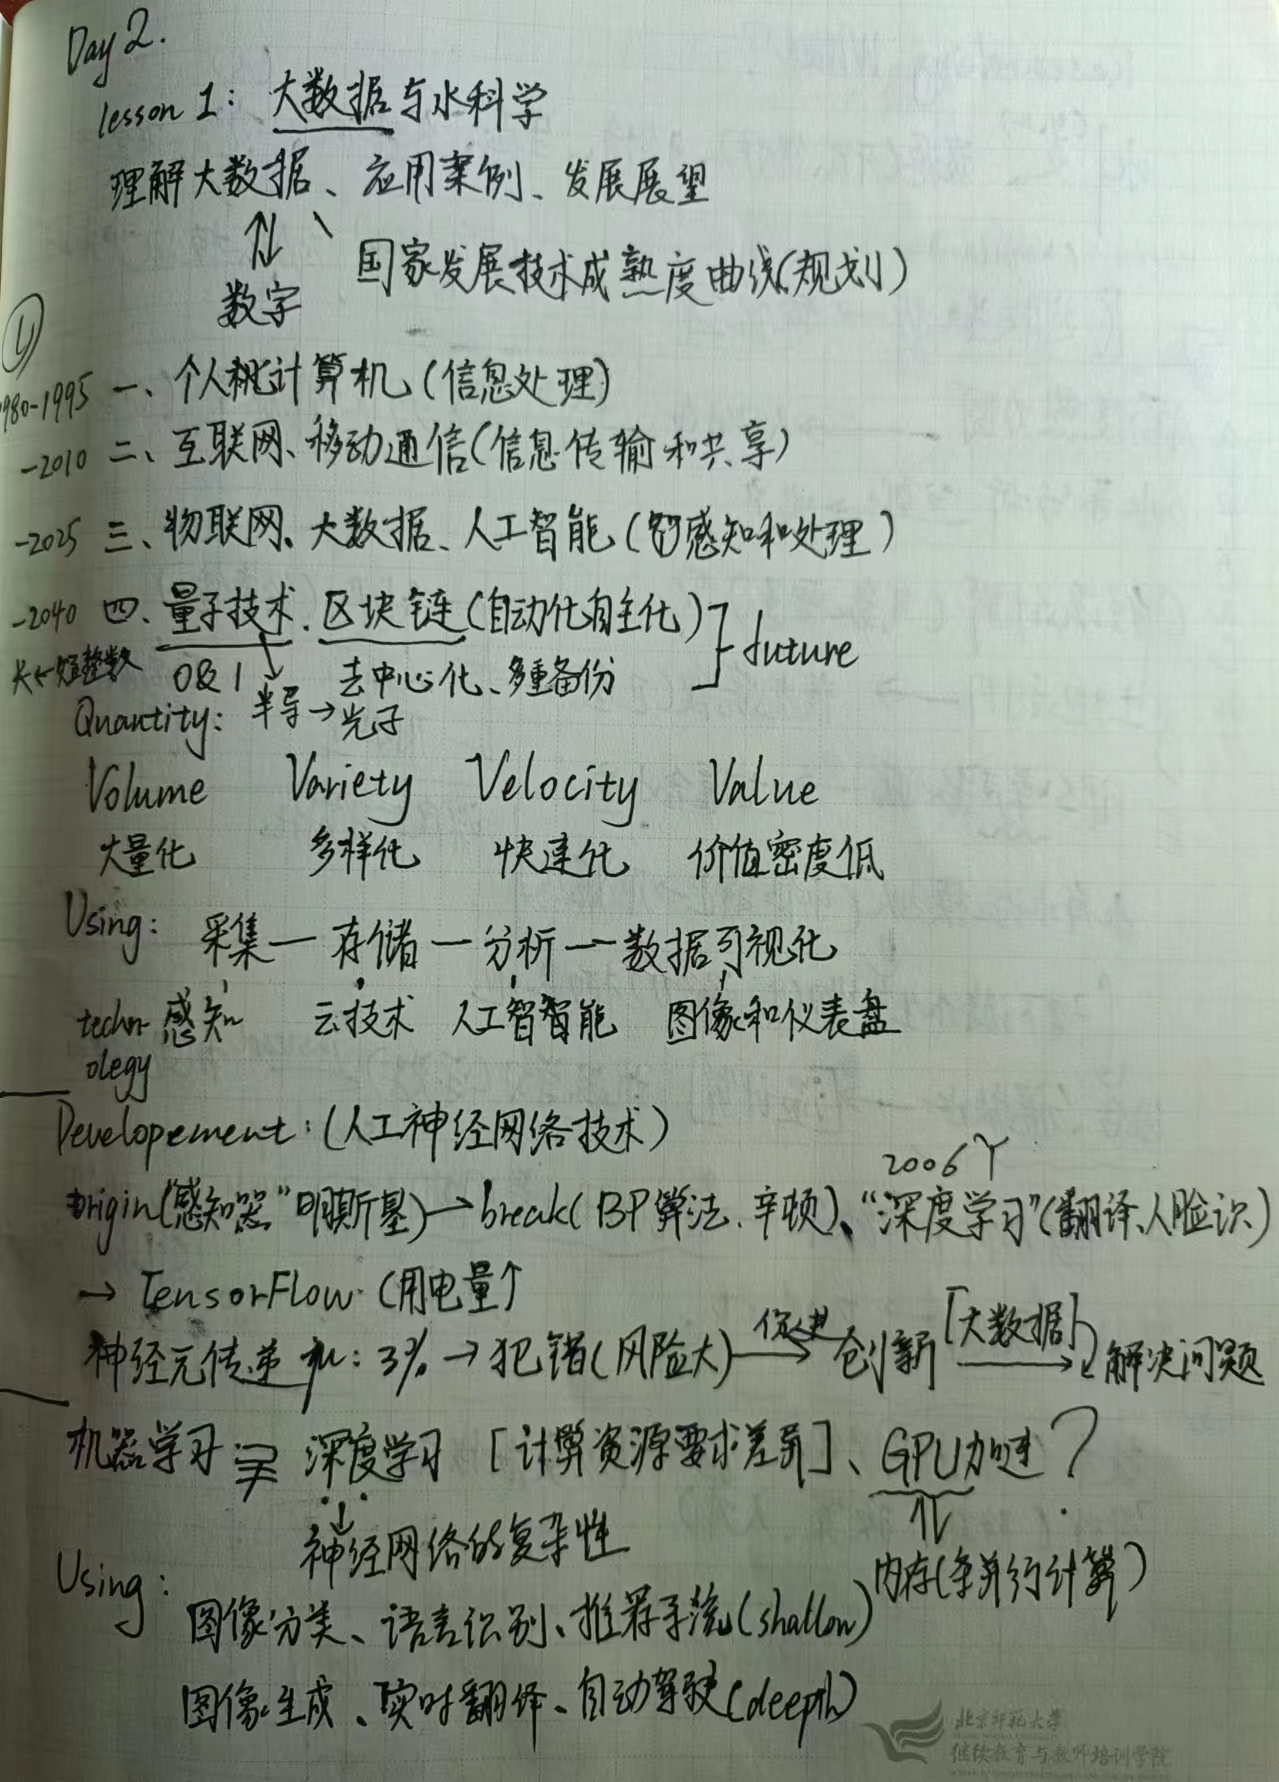 Day 2.
lesson 1: 大数据与水科学
理解大数据、应用案例、发展展望
数字 国家发展技术成熟度曲线(规划)
④
1980-1995 一、个人计算机(信息处理)
-2010 二、互联网、移动通信(信息传输和共享)
-2025 三、物联网、大数据、人工智能(感知和处理)
-2040 四、量子技术、区块链(自动化自主化) future
0&1 去中心化、多重备份
Quantity: 半导→光子
Volume Variety Velocity Value
大量化 多样化 快速化 价值密度低
Using: 采集—存储—分析—数据可视化
techn- 感知 云技术 人工智智能 图像和仪表盘
ology
Developement:(人工神经网络技术)
2006Y
origin("感知器"明斯基)→break(BP算法、辛顿)、"深度学习"(翻译、人脸识)
→ TensorFlow (用电量↑
神经元传递 : 3% →犯错(风险大) 促进→ 创新 [大数据]→解决问题
机器学习 深度学习 [计算资源要求差异]、GPU加速?
神经网络的复杂性 内存(并行计算)
Using:
图像分类、语言识别、推荐系统(shallow)
图像生成、实时翻译、自动驾驶(deepth)
北京师范大学
继续教育与教师培训学院